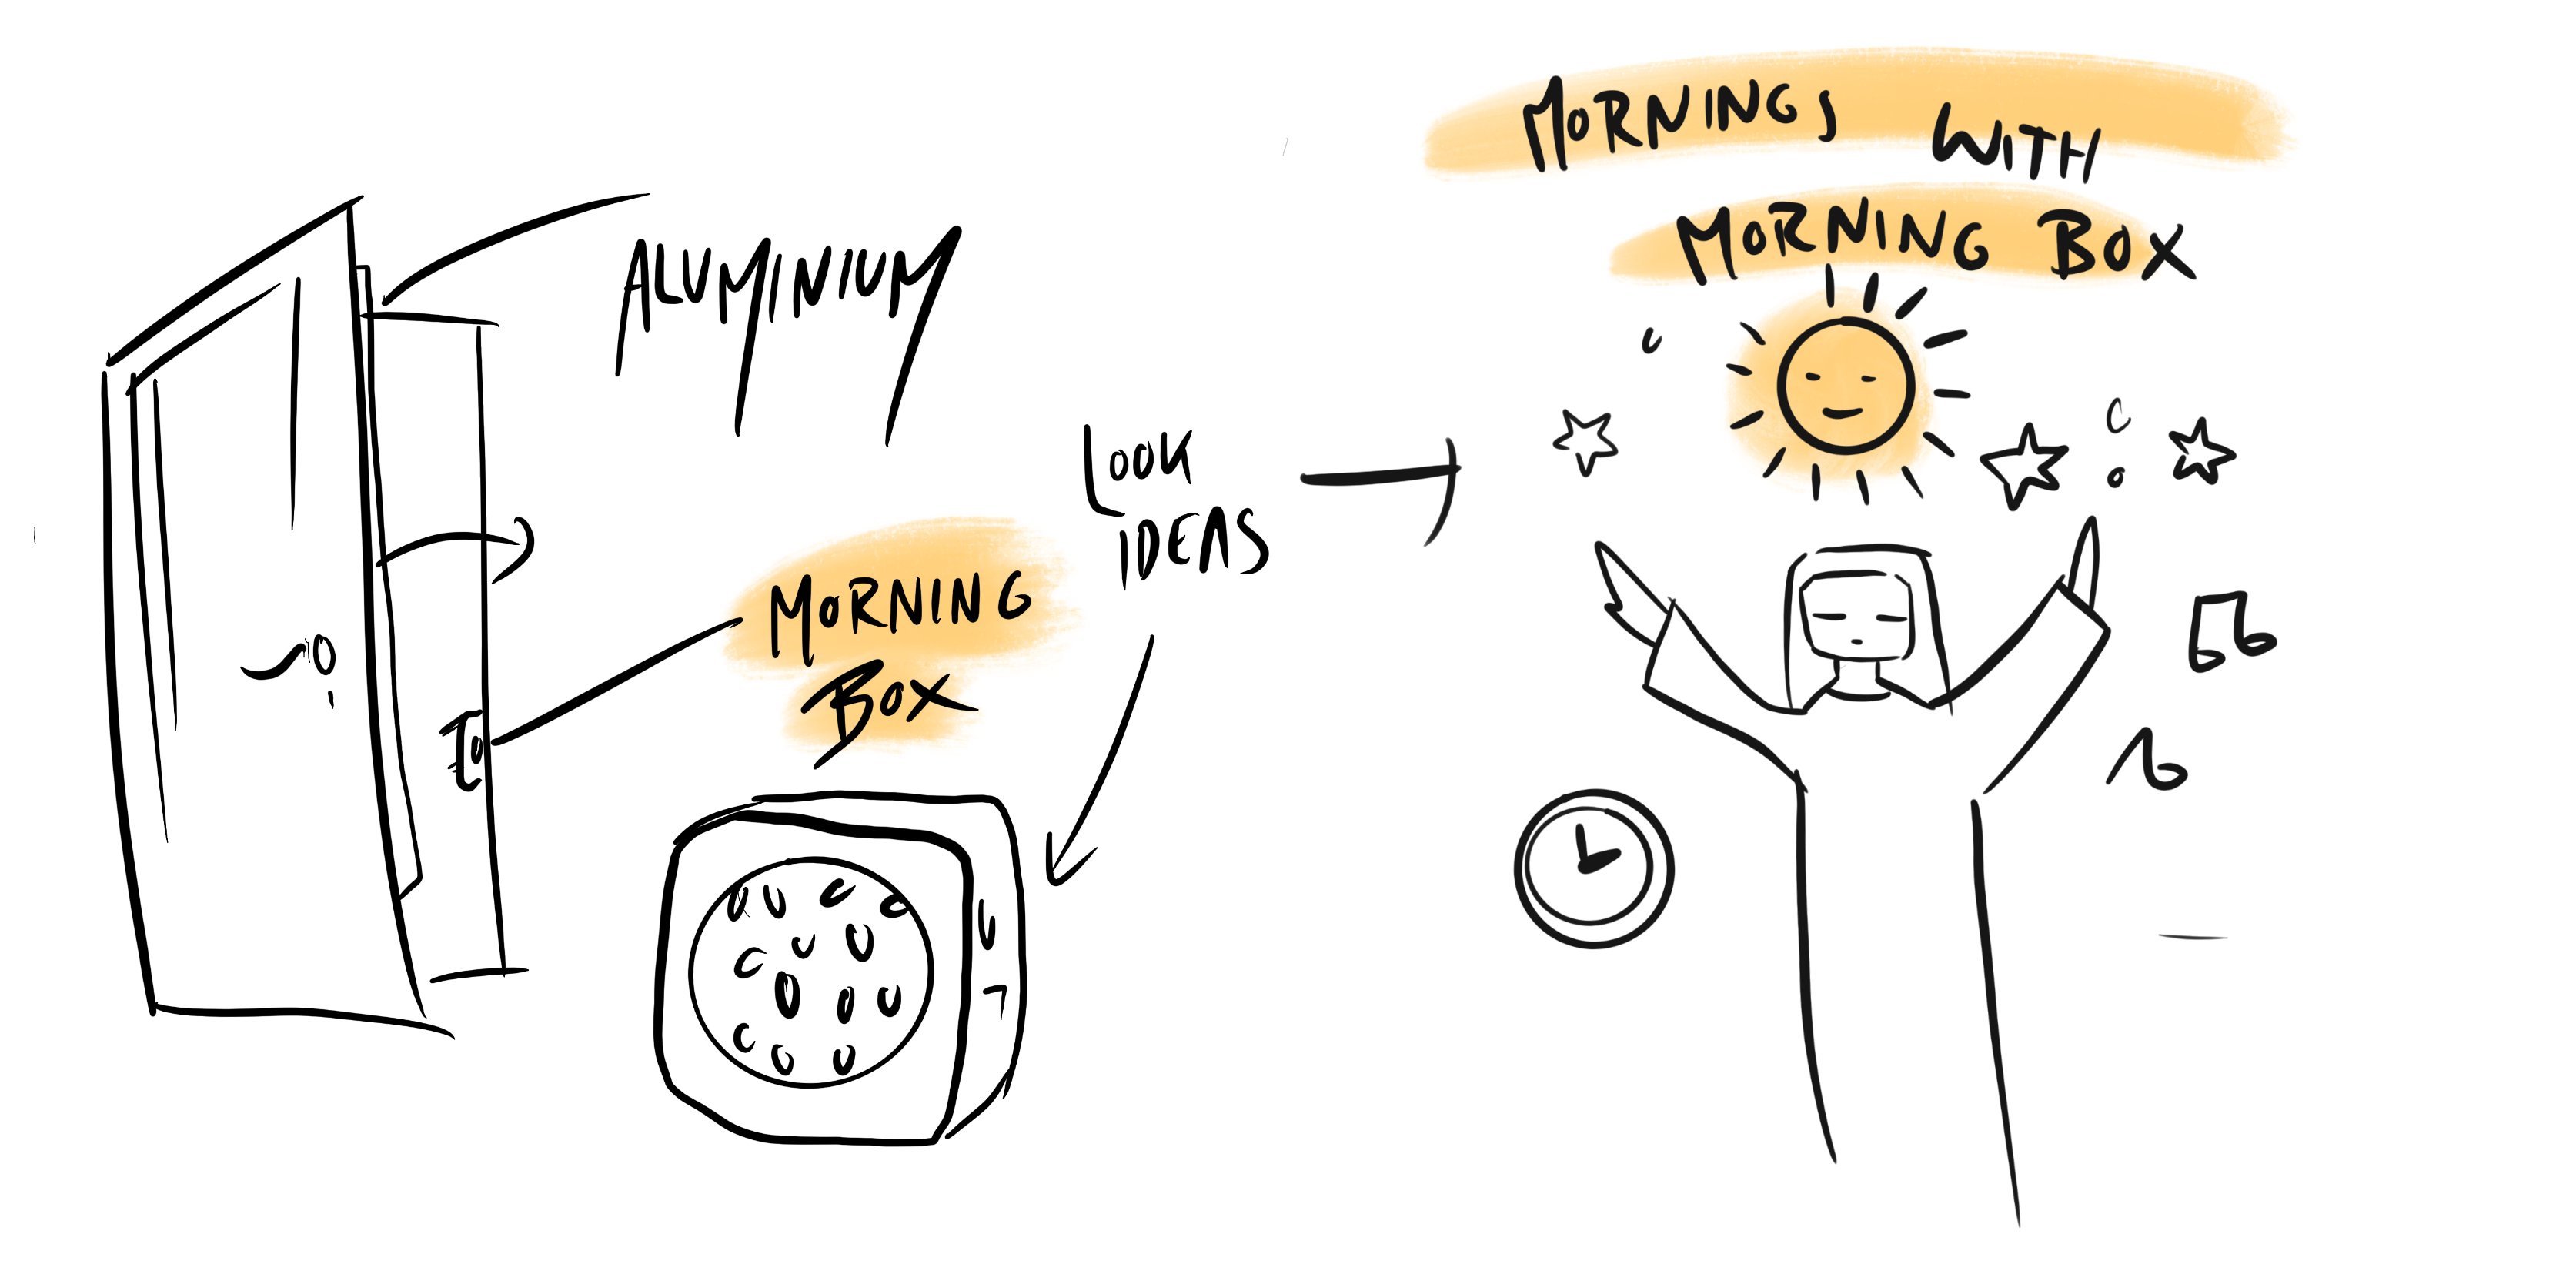 ALUMINIUM
MORNING
BOX
LOOK
IDEAS
MORNINGS WITH
MORNING BOX